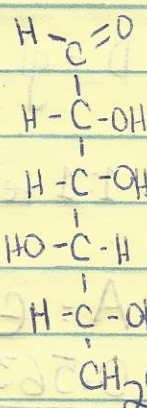 H-C=O
H-C-OH
H-C-OH
HO-C-H
H-C-O
CH2